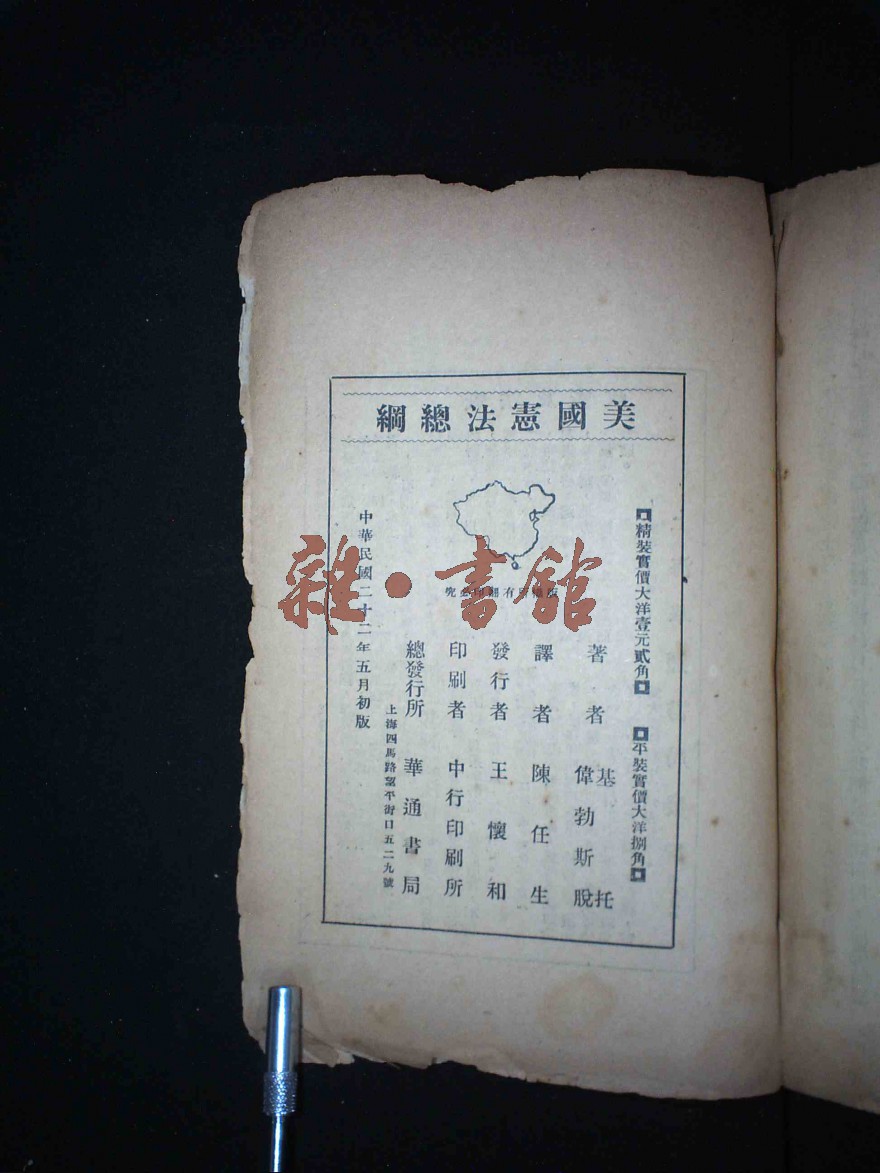 美國憲法總綱
精裝實價大洋壹元貳角
平裝實價大洋捌角
版權所有翻印必究
著者 基托 偉勃斯脫
譯者 陳任生
發行者 王懷和
印刷者 中行印刷所
總發行所 華通書局
上海四馬路望平街口五二九號
中華民國二十二年五月初版
雜·書館